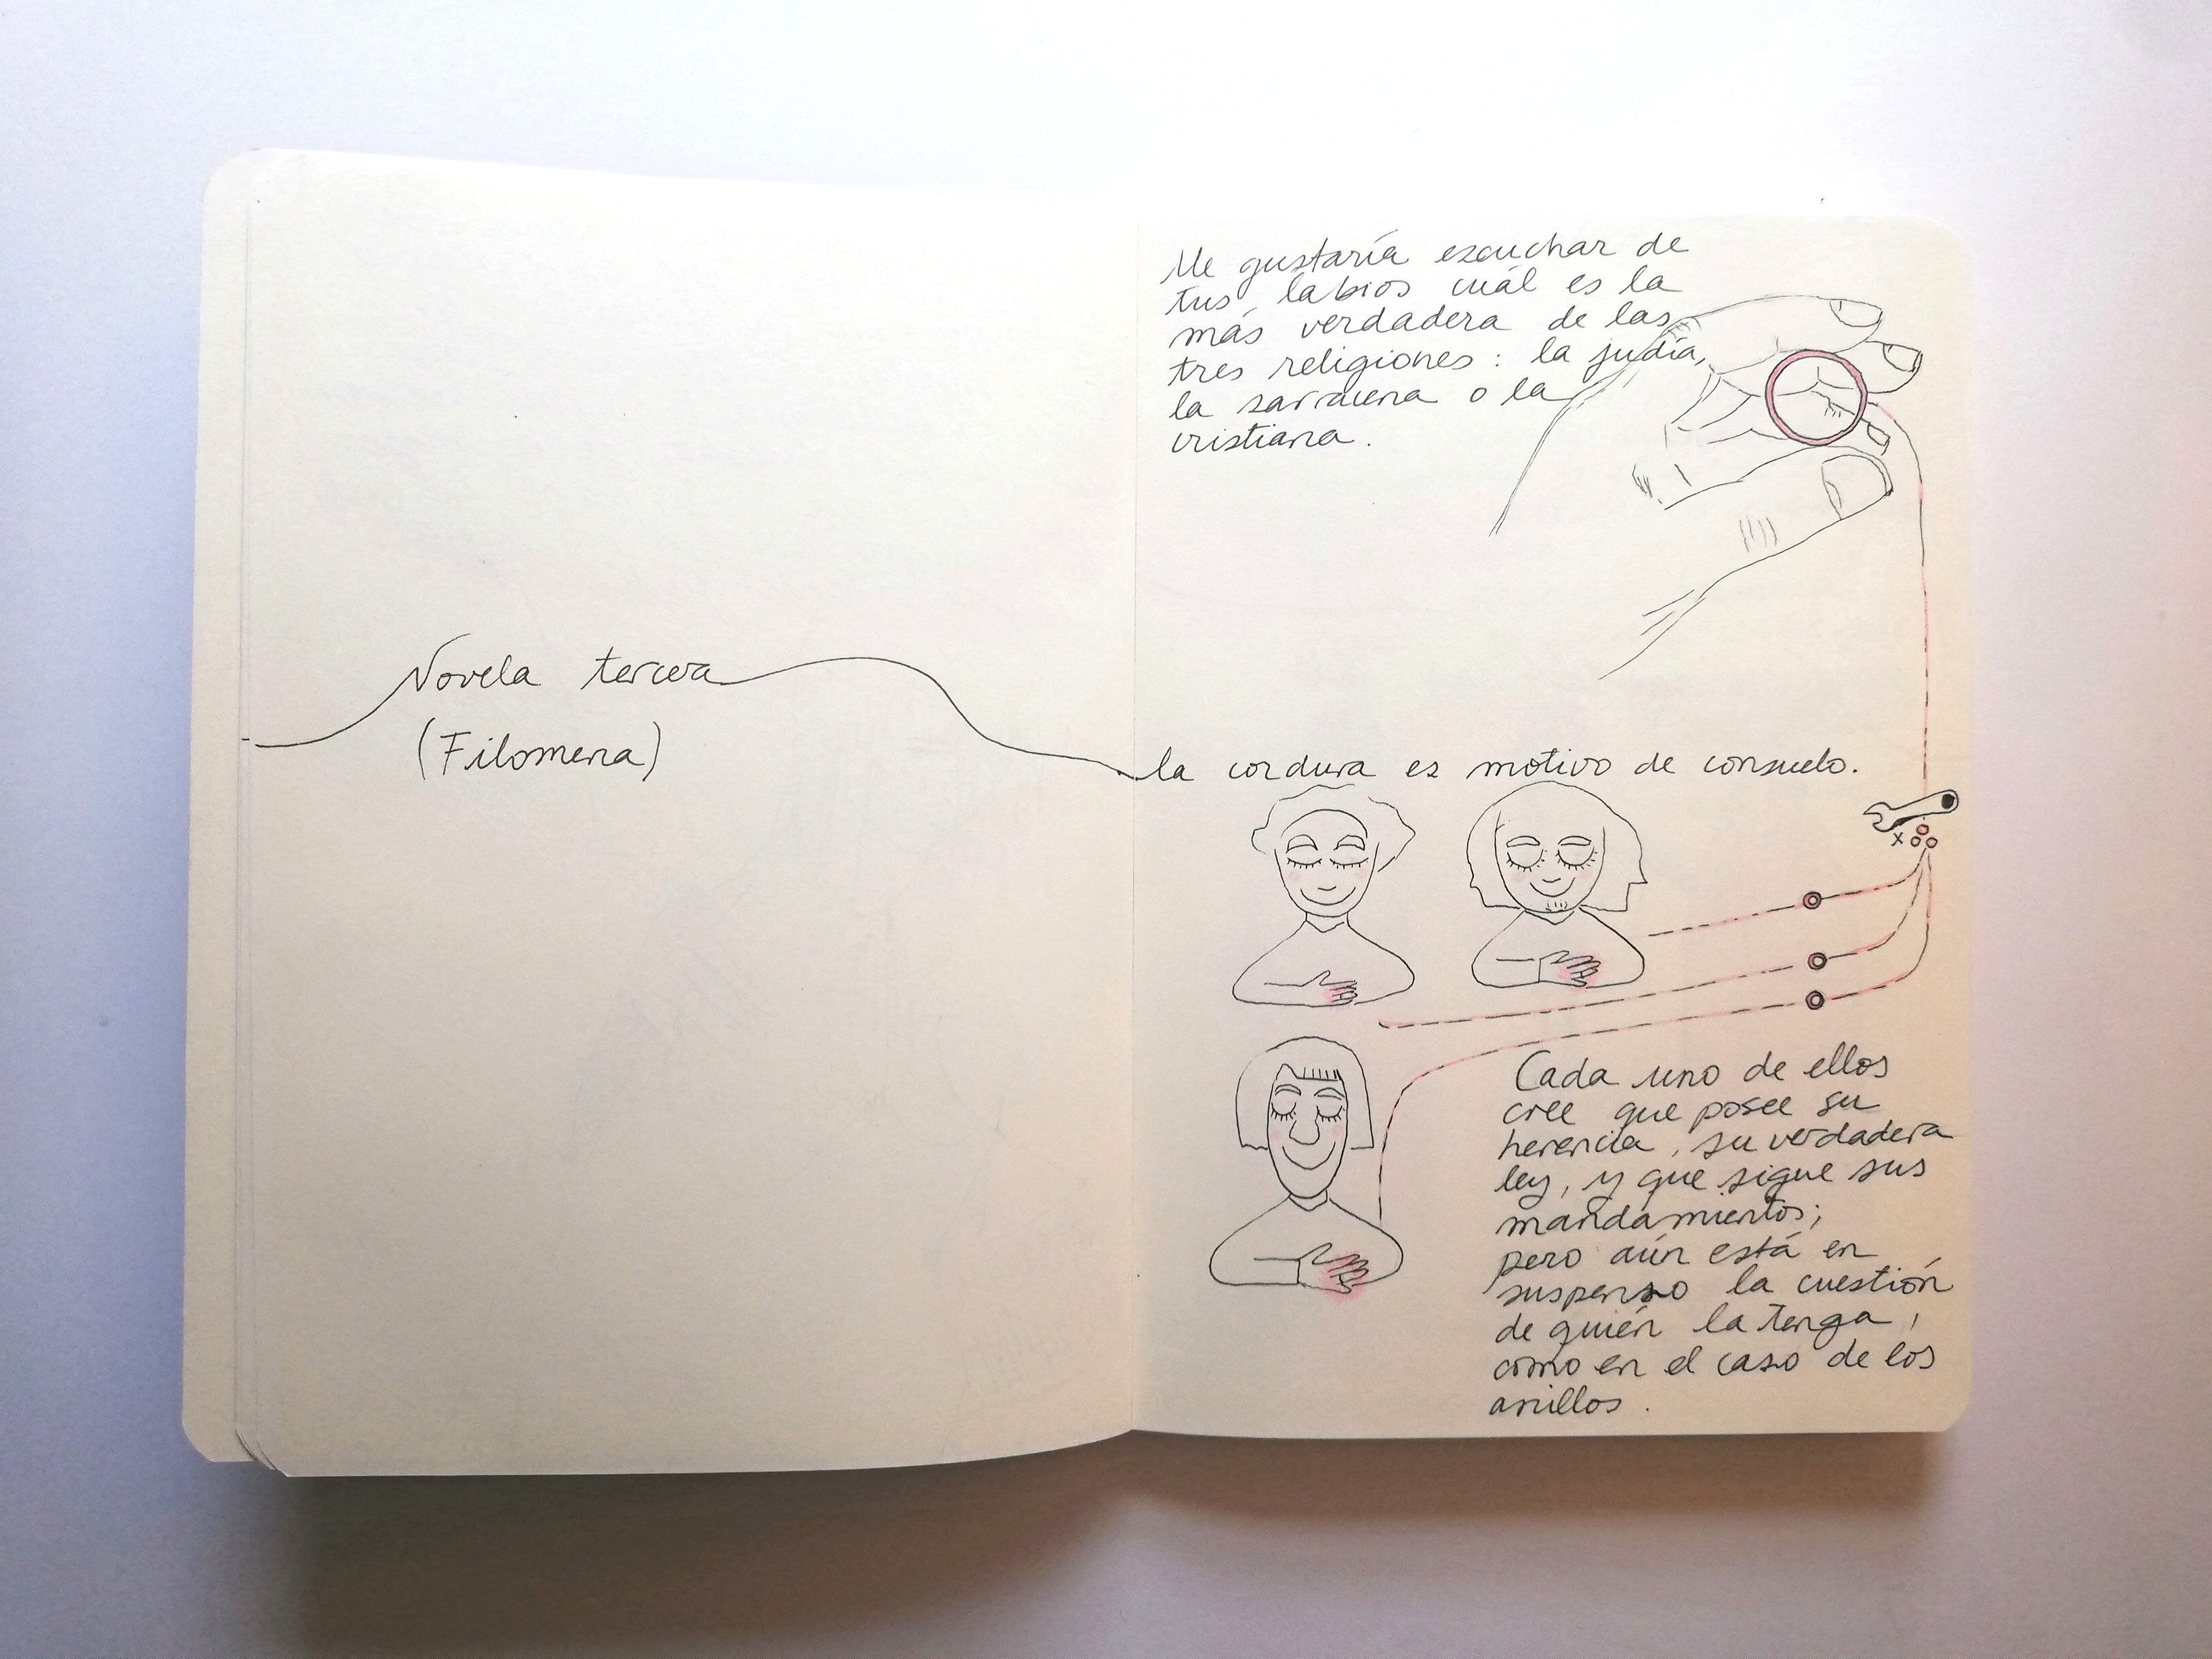 Novela tercera
(Filomena)
Me gustaría escuchar de
tus labios cuál es la
más verdadera de las
tres religiones: la judía,
la sarracena o la
cristiana.
la cordura es motivo de consuelo.
x
Cada uno de ellos
cree que posee su
herencia, su verdadera
ley, y que sigue sus
mandamientos;
pero aún está en
suspenso la cuestión
de quién la tenga,
como en el caso de los
anillos.